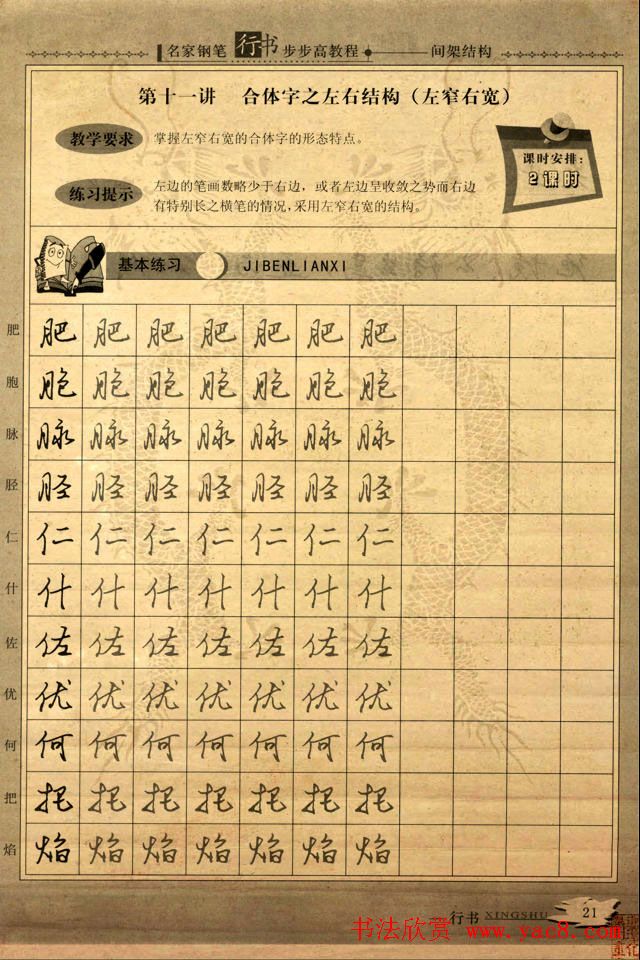 名家钢笔行书步步高教程 间架结构
第十一讲 合体字之左右结构（左窄右宽）
教学要求 掌握左窄右宽的合体字的形态特点。
课时安排：
2课时
练习提示 左边的笔画数略少于右边，或者左边呈收敛之势而右边
有特别长之横笔的情况，采用左窄右宽的结构。
基本练习 JIBENLIANXI
肥 肥 肥 肥 肥 肥 肥 肥
胞 胞 胞 胞 胞 胞 胞 胞
脉 脉 脉 脉 脉 脉 脉 脉
胫 胫 胫 胫 胫 胫 胫 胫
仁 仁 仁 仁 仁 仁 仁 仁
什 什 什 什 什 什 什 什
佐 佐 佐 佐 佐 佐 佐 佐
优 优 优 优 优 优 优 优
何 何 何 何 何 何 何 何
把 把 把 把 把 把 把 把
焰 焰 焰 焰 焰 焰 焰 焰
行书 XINGSHU 21
书法欣赏 www.yac8.com